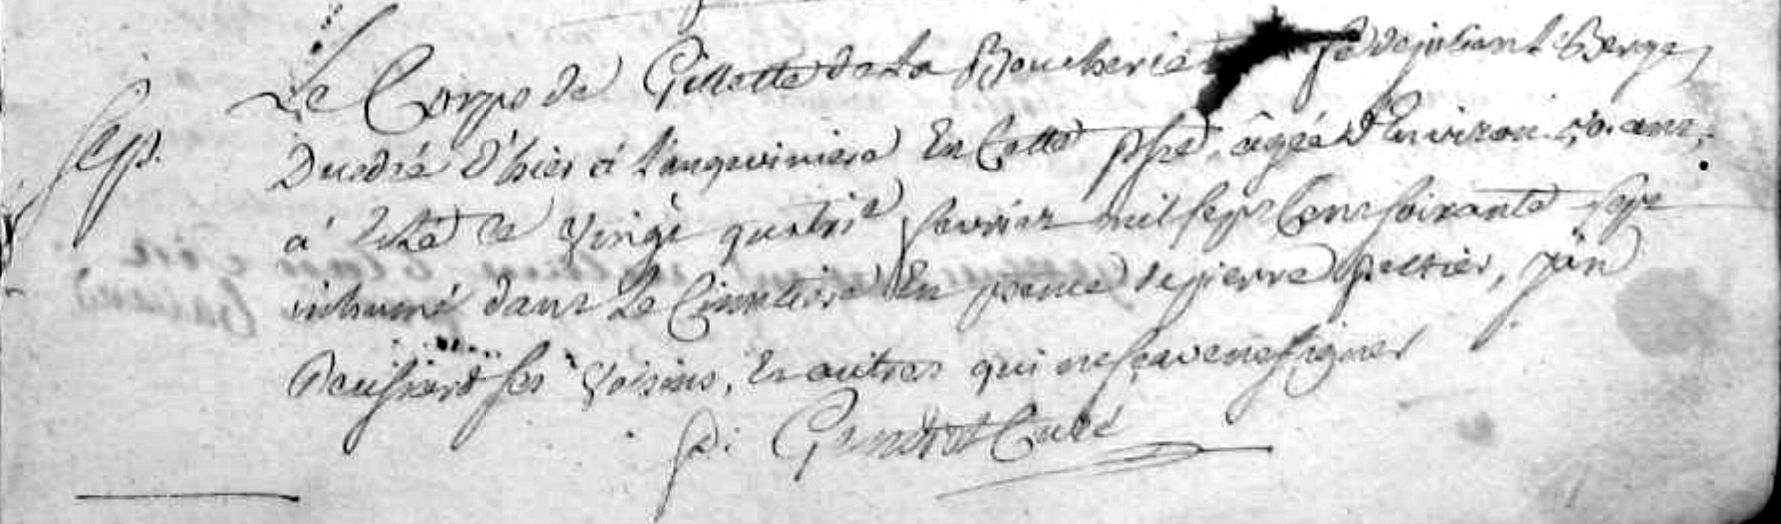 Sep.
Le Corps de Gillette de La Boucherie fe de julient Berge
Ducdré d'hier à l'angeviniere En Cette psse, âgée d'Environ 50. ans,
a été ce vingt quatre fevrier mil sept Cent soixante sept
inhumé dans Le Cimetiere En psence de pierre peltier, jên
ses voisins, Et autres qui ne sçavent signer
Curé